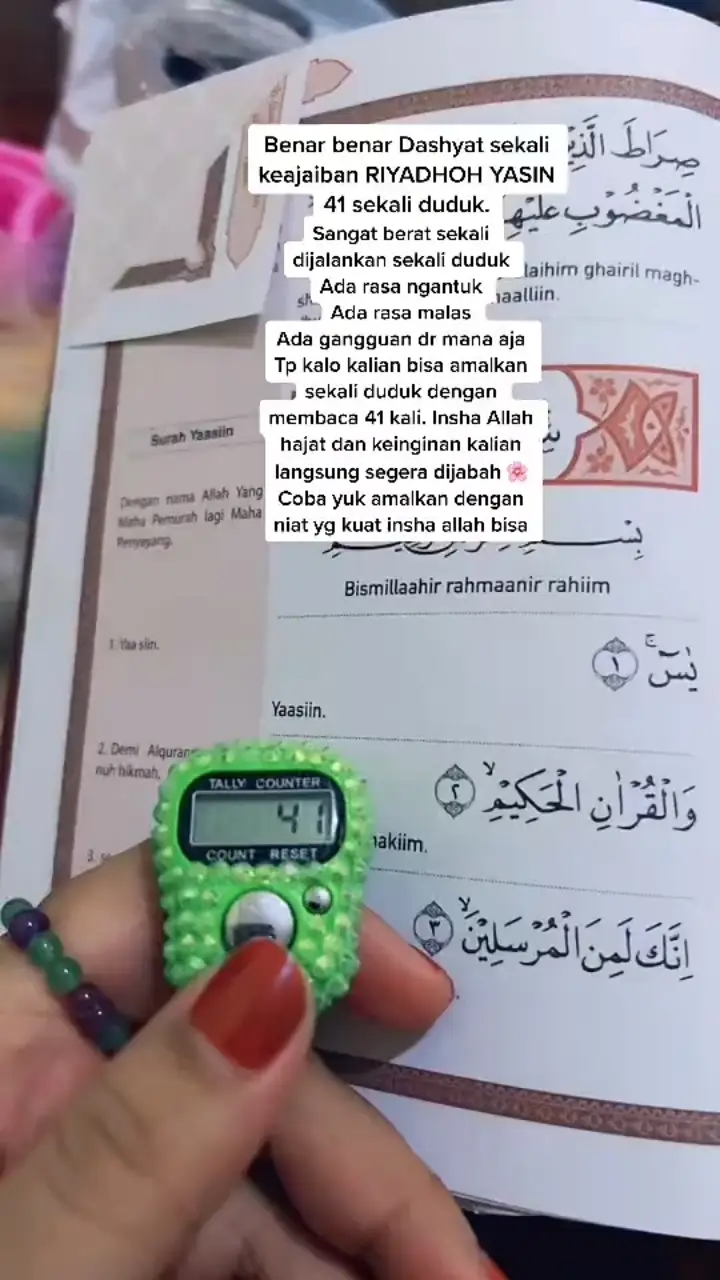 Benar benar Dashyat sekali
keajaiban RIYADHOH YASIN
41 sekali duduk.
Sangat berat sekali
dijalankan sekali duduk
Ada rasa ngantuk
Ada rasa malas
Ada gangguan dr mana aja
Tp kalo kalian bisa amalkan
sekali duduk dengan
membaca 41 kali. Insha Allah
hajat dan keinginan kalian
langsung segera dijabah 🌸
Coba yuk amalkan dengan
niat yg kuat insha allah bisa
صِرَاطَ
الْمَغْضُوْبِ
ghairil magh-
Surah Yaasiin
Dengan nama Allah Yang
Maha Pemurah lagi Maha
Penyayang.
Bismillaahir rahmaanir rahiim
1. Yaa siin.
يٰسۤ ۚ ١
Yaasiin.
2. Demi
nuh hikmah,
وَالْقُرْاٰنِ الْحَكِيْمِۙ ٢
اِنَّكَ لَمِنَ الْمُرْسَلِيْنَۙ ٣
3.
TALLY COUNTER
41
COUNT RESET